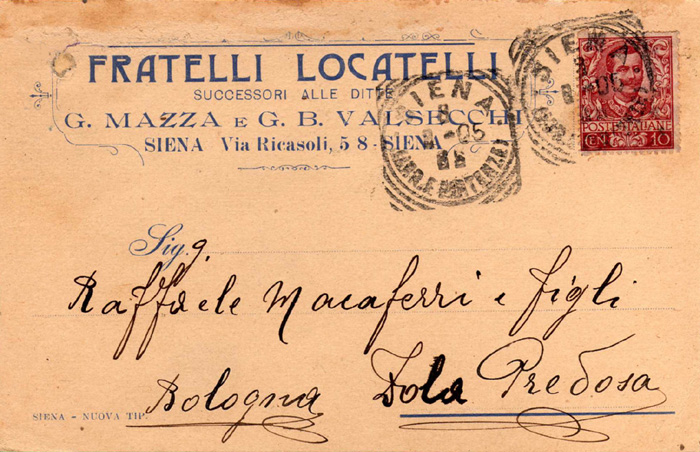 FRATELLI LOCATELLI
SUCCESSORI ALLE DITTE
G. MAZZA E G. B. VALSECCHI
SIENA Via Ricasoli, 58 - SIENA
SIENA
8
2-05
(ARR. E PARTENZE)
SIENA
8
05
POSTE ITALIANE
CEN 10
Sigg.
Raffaele Macaferri e figli
Bologna Zola Predosa
SIENA - NUOVA TIP.